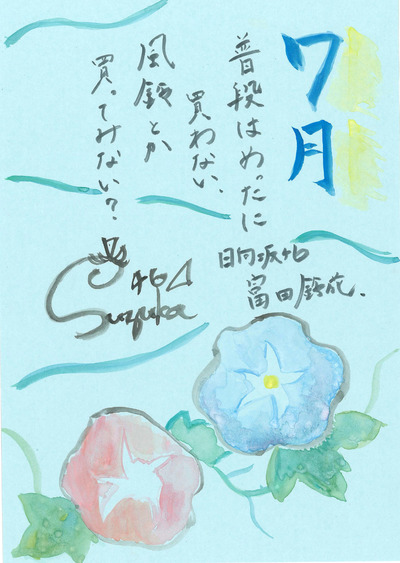 7月
普段はめったに
買わない、
風鈴とか
買ってみない？
日向坂46
富田鈴花.
46
Suzuka